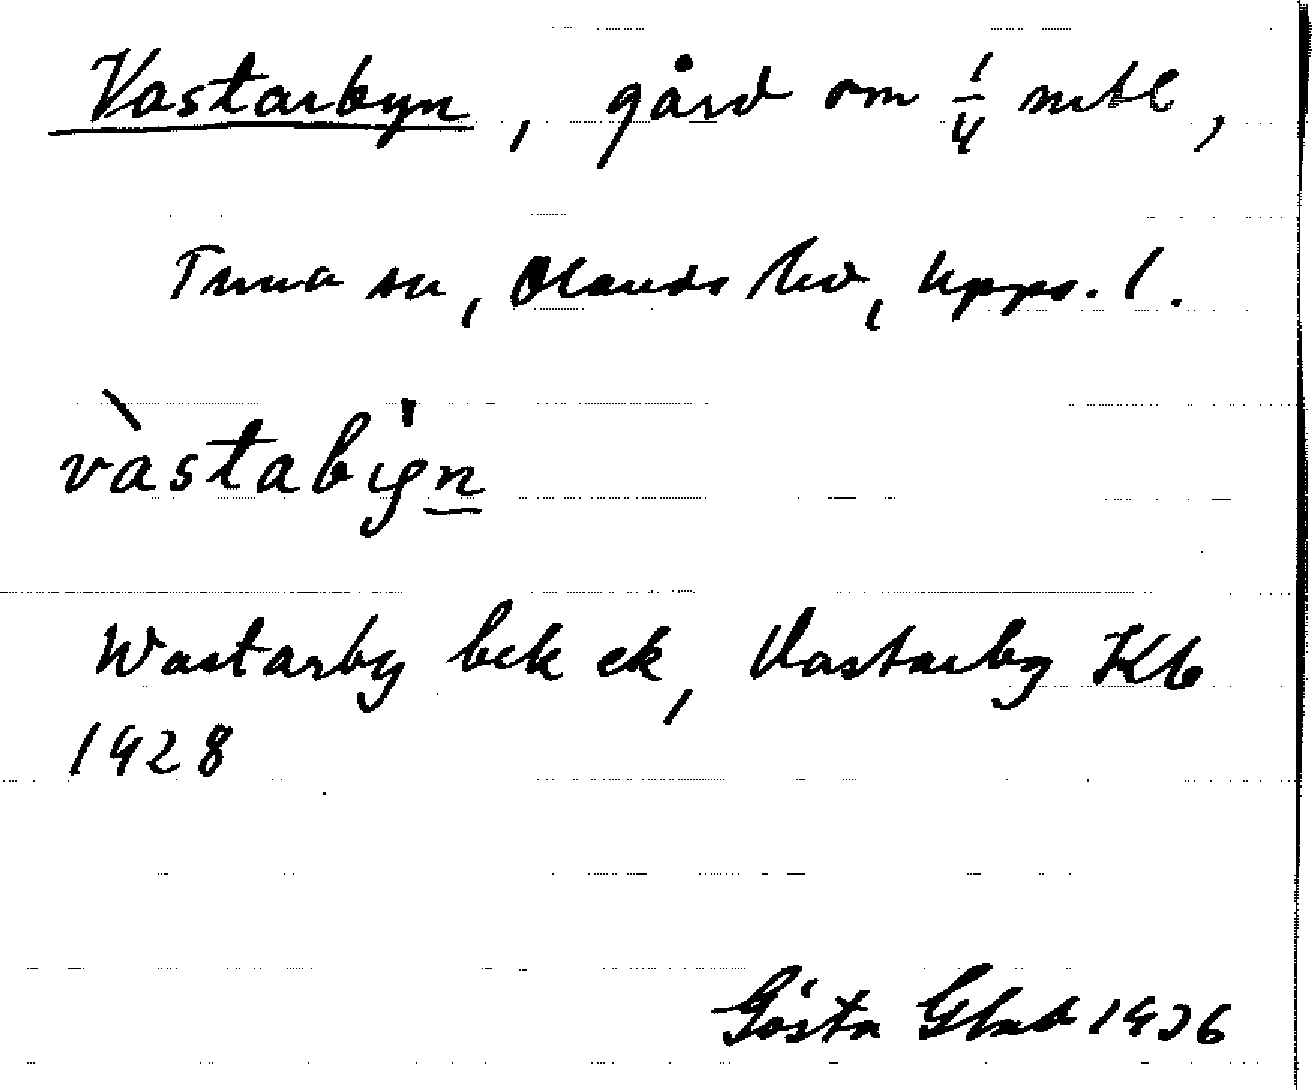 Vastarbyn, gård om 1/4 mtl,
Tuna sn, Olands hd, Upps. l.
vàstabyn
Wastarby bek ek, Vastarby Kb
1928
Gösta 1936